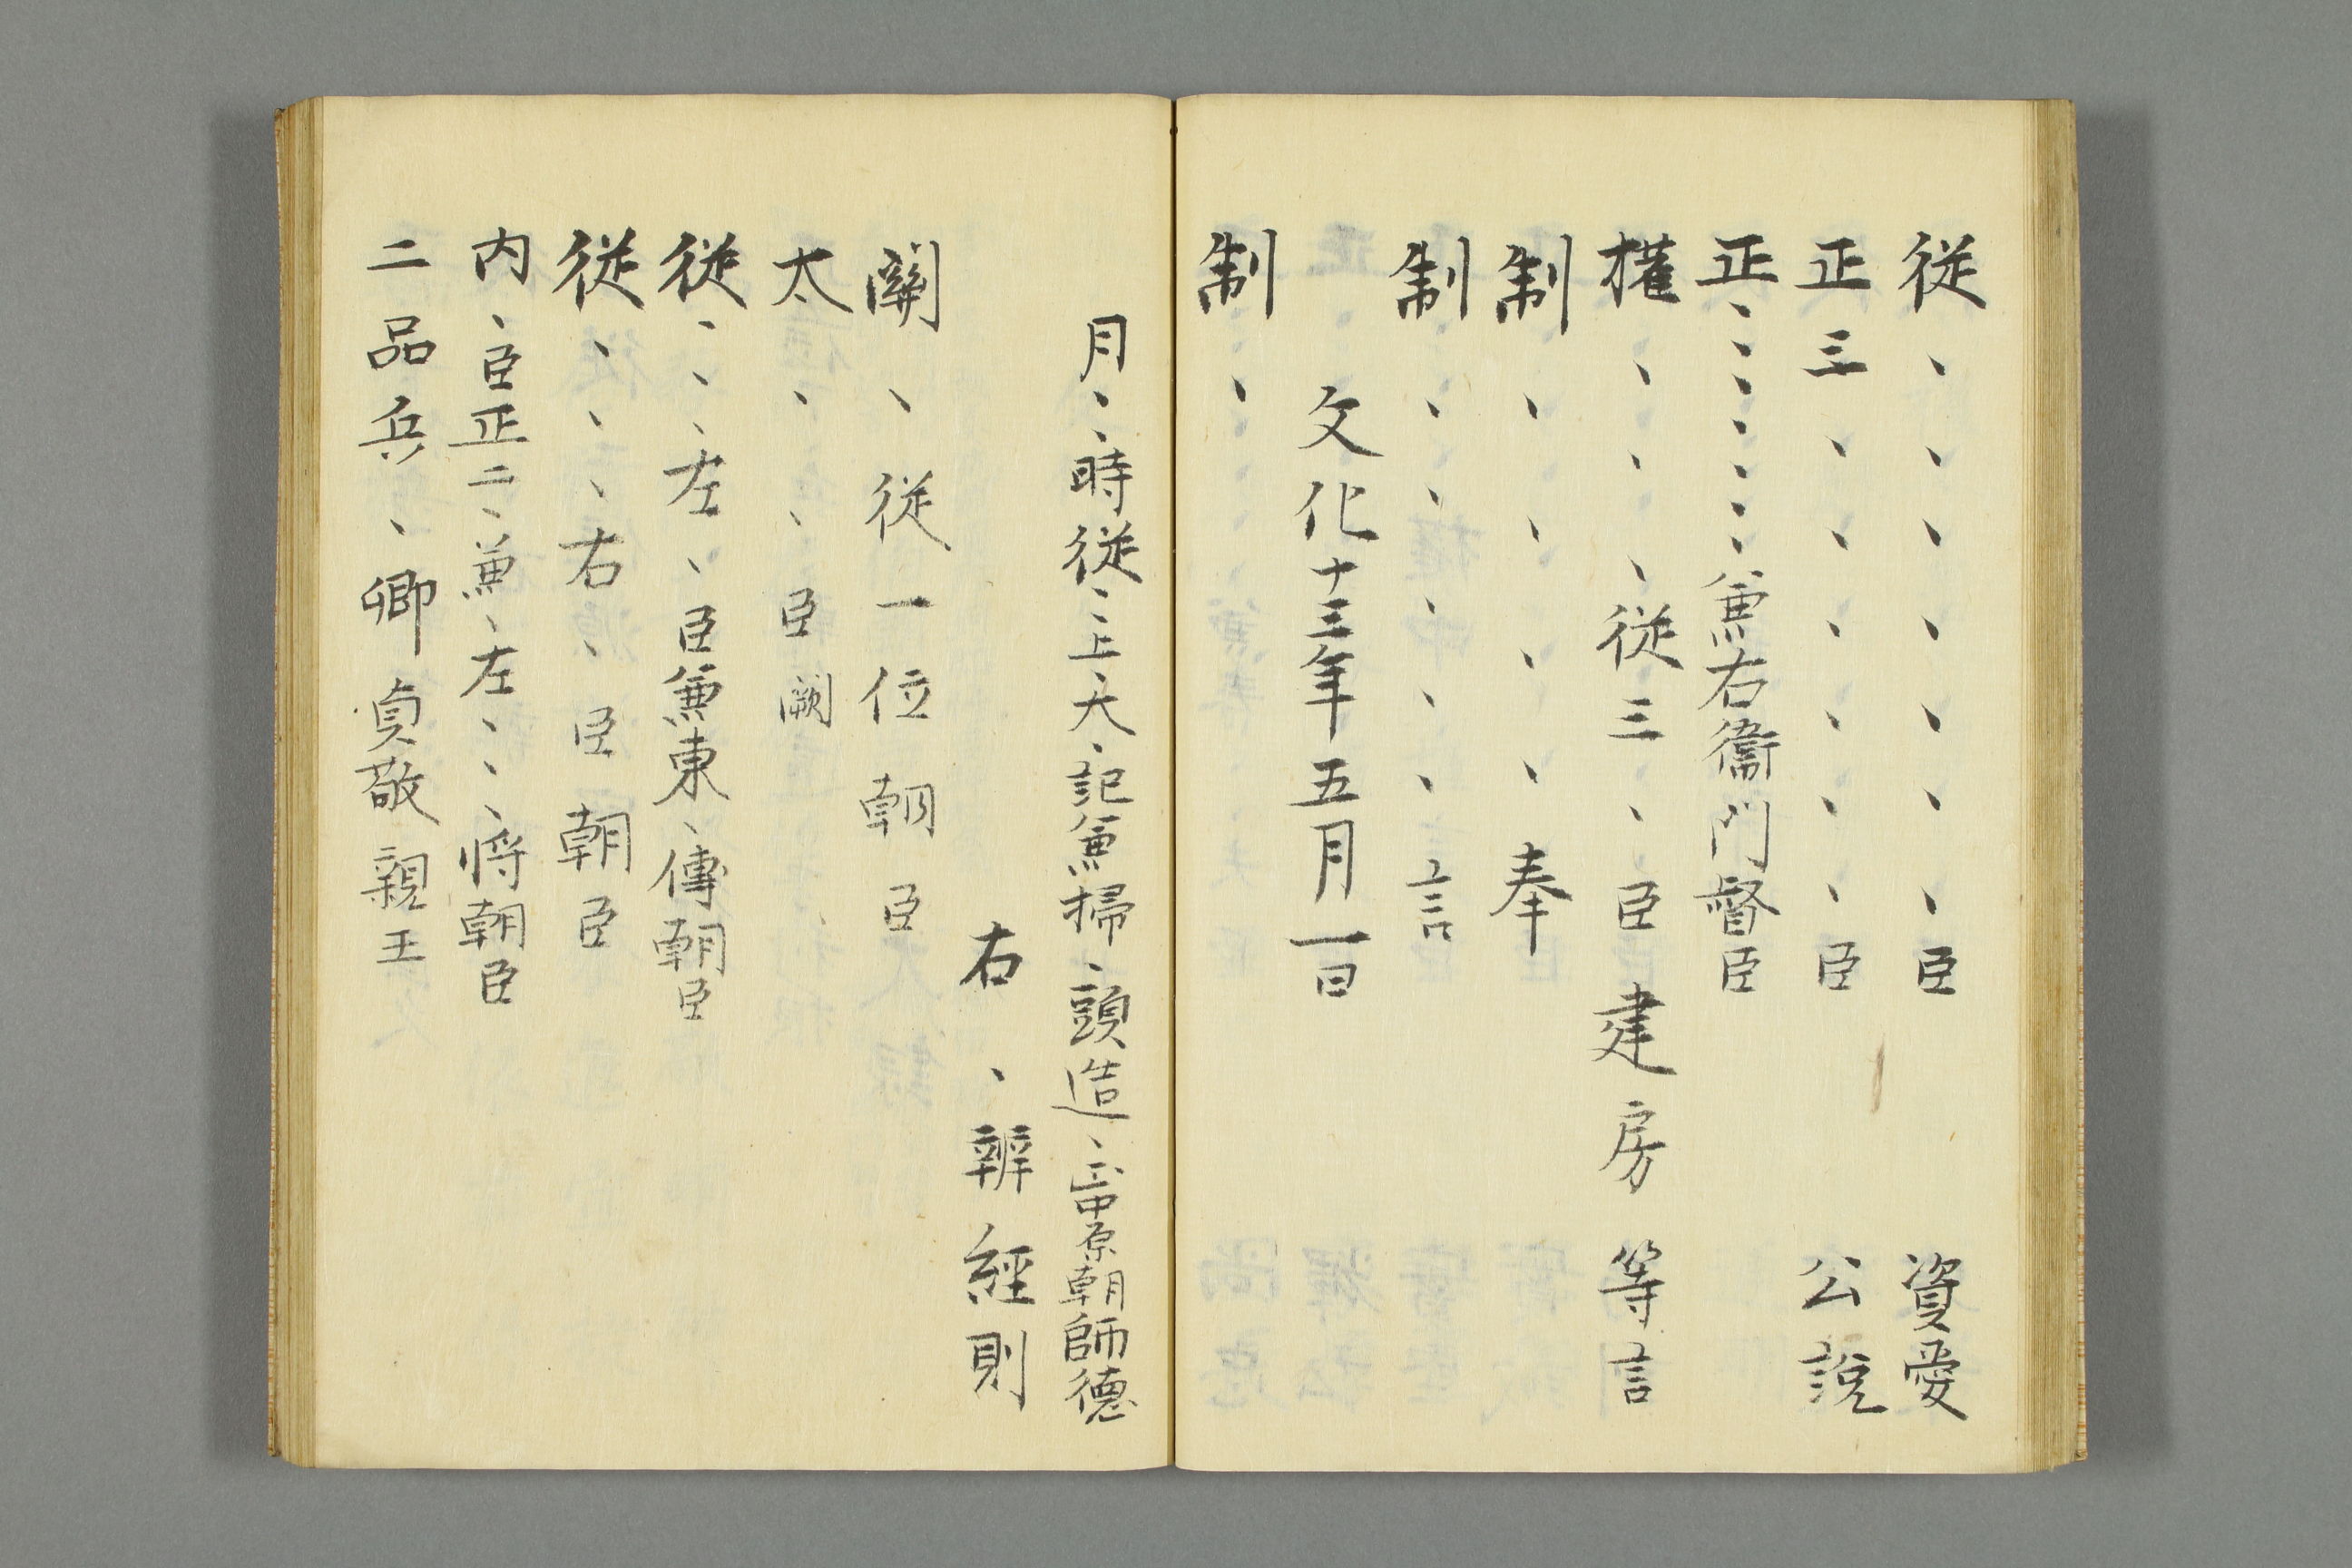 従、、、、、、、臣 資愛
正三、、、、、、臣 公説
正、、、、、、、兼右衞門督臣
権、、、従三、、臣建房等言
制、、、、奉
制、、、、、言
文化十三年五月一日
制、
月、、時従、上大、記兼掃、頭造、、中原朝師徳
右、辨経則
関、従一位朝臣
太、、臣闕
従、、、左、臣兼東、傳朝臣
従、、、右、臣朝臣
内、臣正二、兼、左、、、将朝臣
二品兵、卿貞敬親王